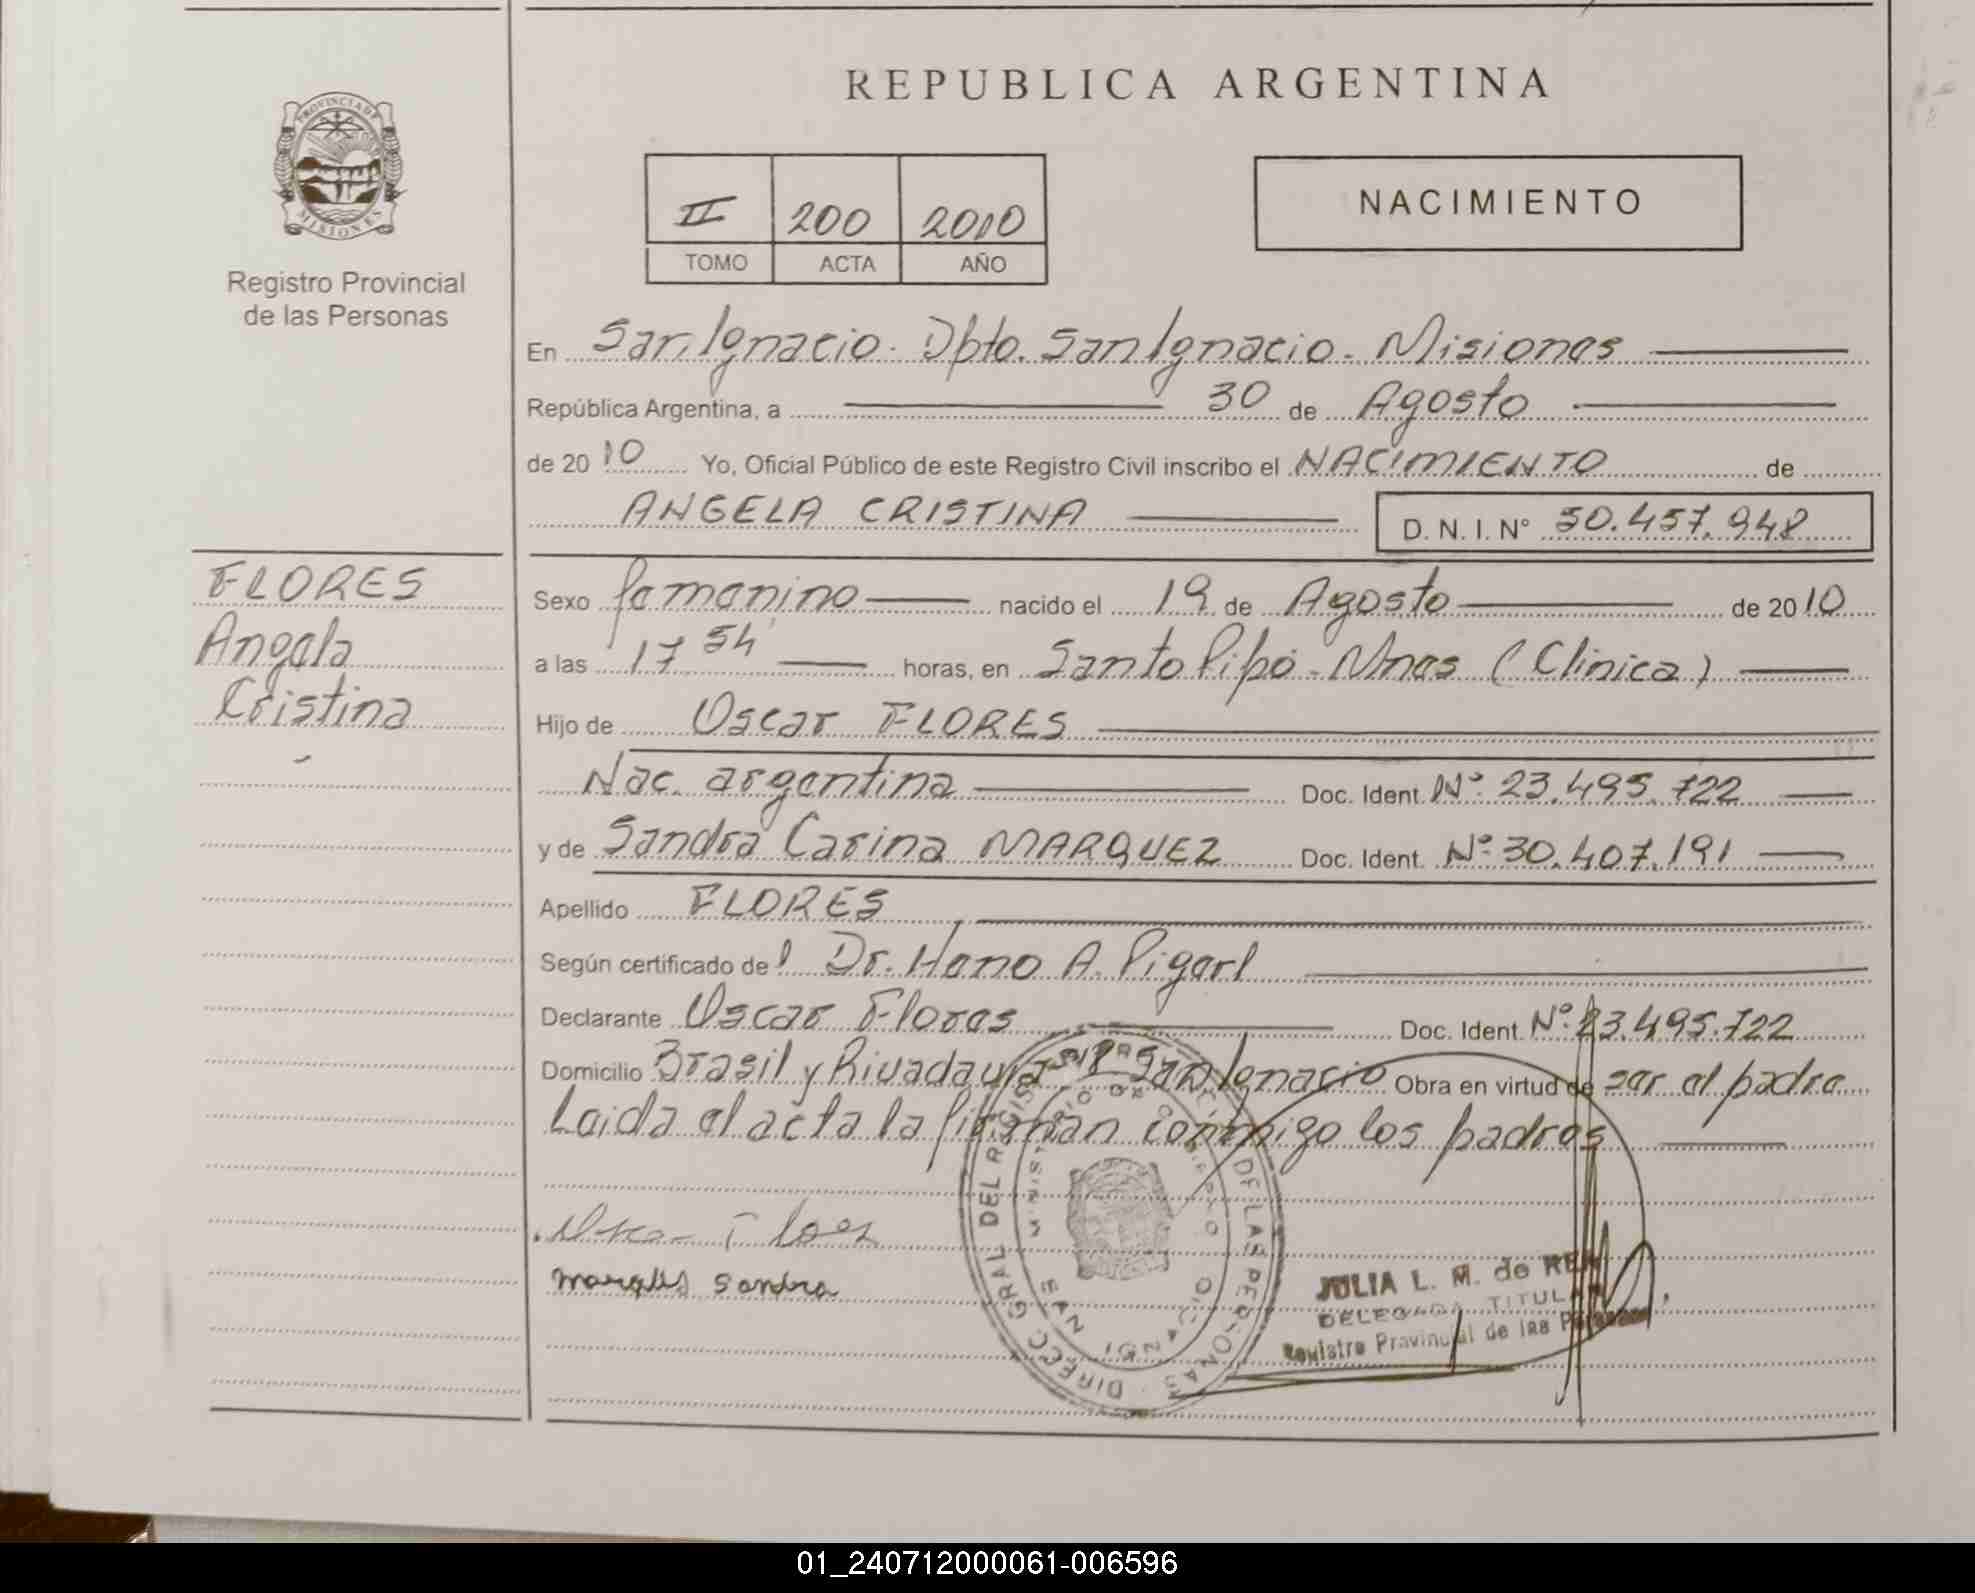 REPUBLICA ARGENTINA
PROVINCIA DE MISIONES
Registro Provincial
de las Personas
II 200 2010
TOMO ACTA AÑO
NACIMIENTO
En San Ignacio. Dpto. San Ignacio. Misiones
República Argentina, a 30 de Agosto
de 20 10 Yo, Oficial Público de este Registro Civil inscribo el NACIMIENTO de
ANGELA CRISTINA D. N. I. N° 50.457.948
FLORES
Angela
Cristina
Sexo femenino nacido el 19 de Agosto de 20 10
a las 17 54 horas, en Santo Pipó - Mnes (Clinica)
Hijo de Oscar FLORES
Nac. argentina Doc. Ident. N° 23.495.722
y de Sandra Carina MARQUEZ Doc. Ident. N° 30.407.191
Apellido FLORES
Según certificado del Dr. Hano A. Pigerl
Declarante Oscar Flores Doc. Ident. N° 23.495.722
Domicilio Brasil y Rivadavia San Ignacio Obra en virtud de ser el padre
Leida el acta la firman conmigo los padres
Marques Sandra
DIRECC GRAL DEL REGISTRO PROV. DE LAS PERSONAS
MINISTERIO DE GOBIERNO
JULIA L. M. de
DELEGADA TITULAR
Registro Provincial de las Personas
01_240712000061-006596